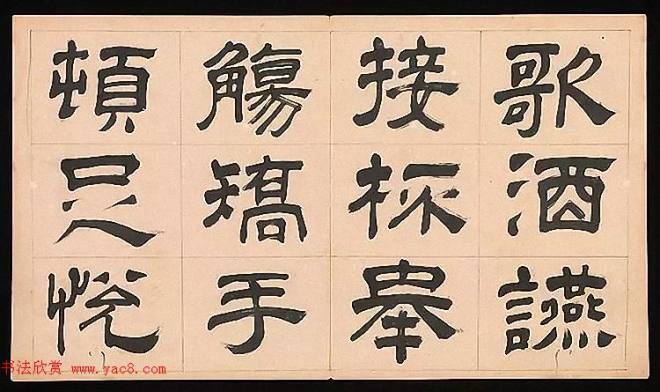 歌酒讌
接杯舉
觴矯手
頓足悅
书法欣赏 www.yac8.com